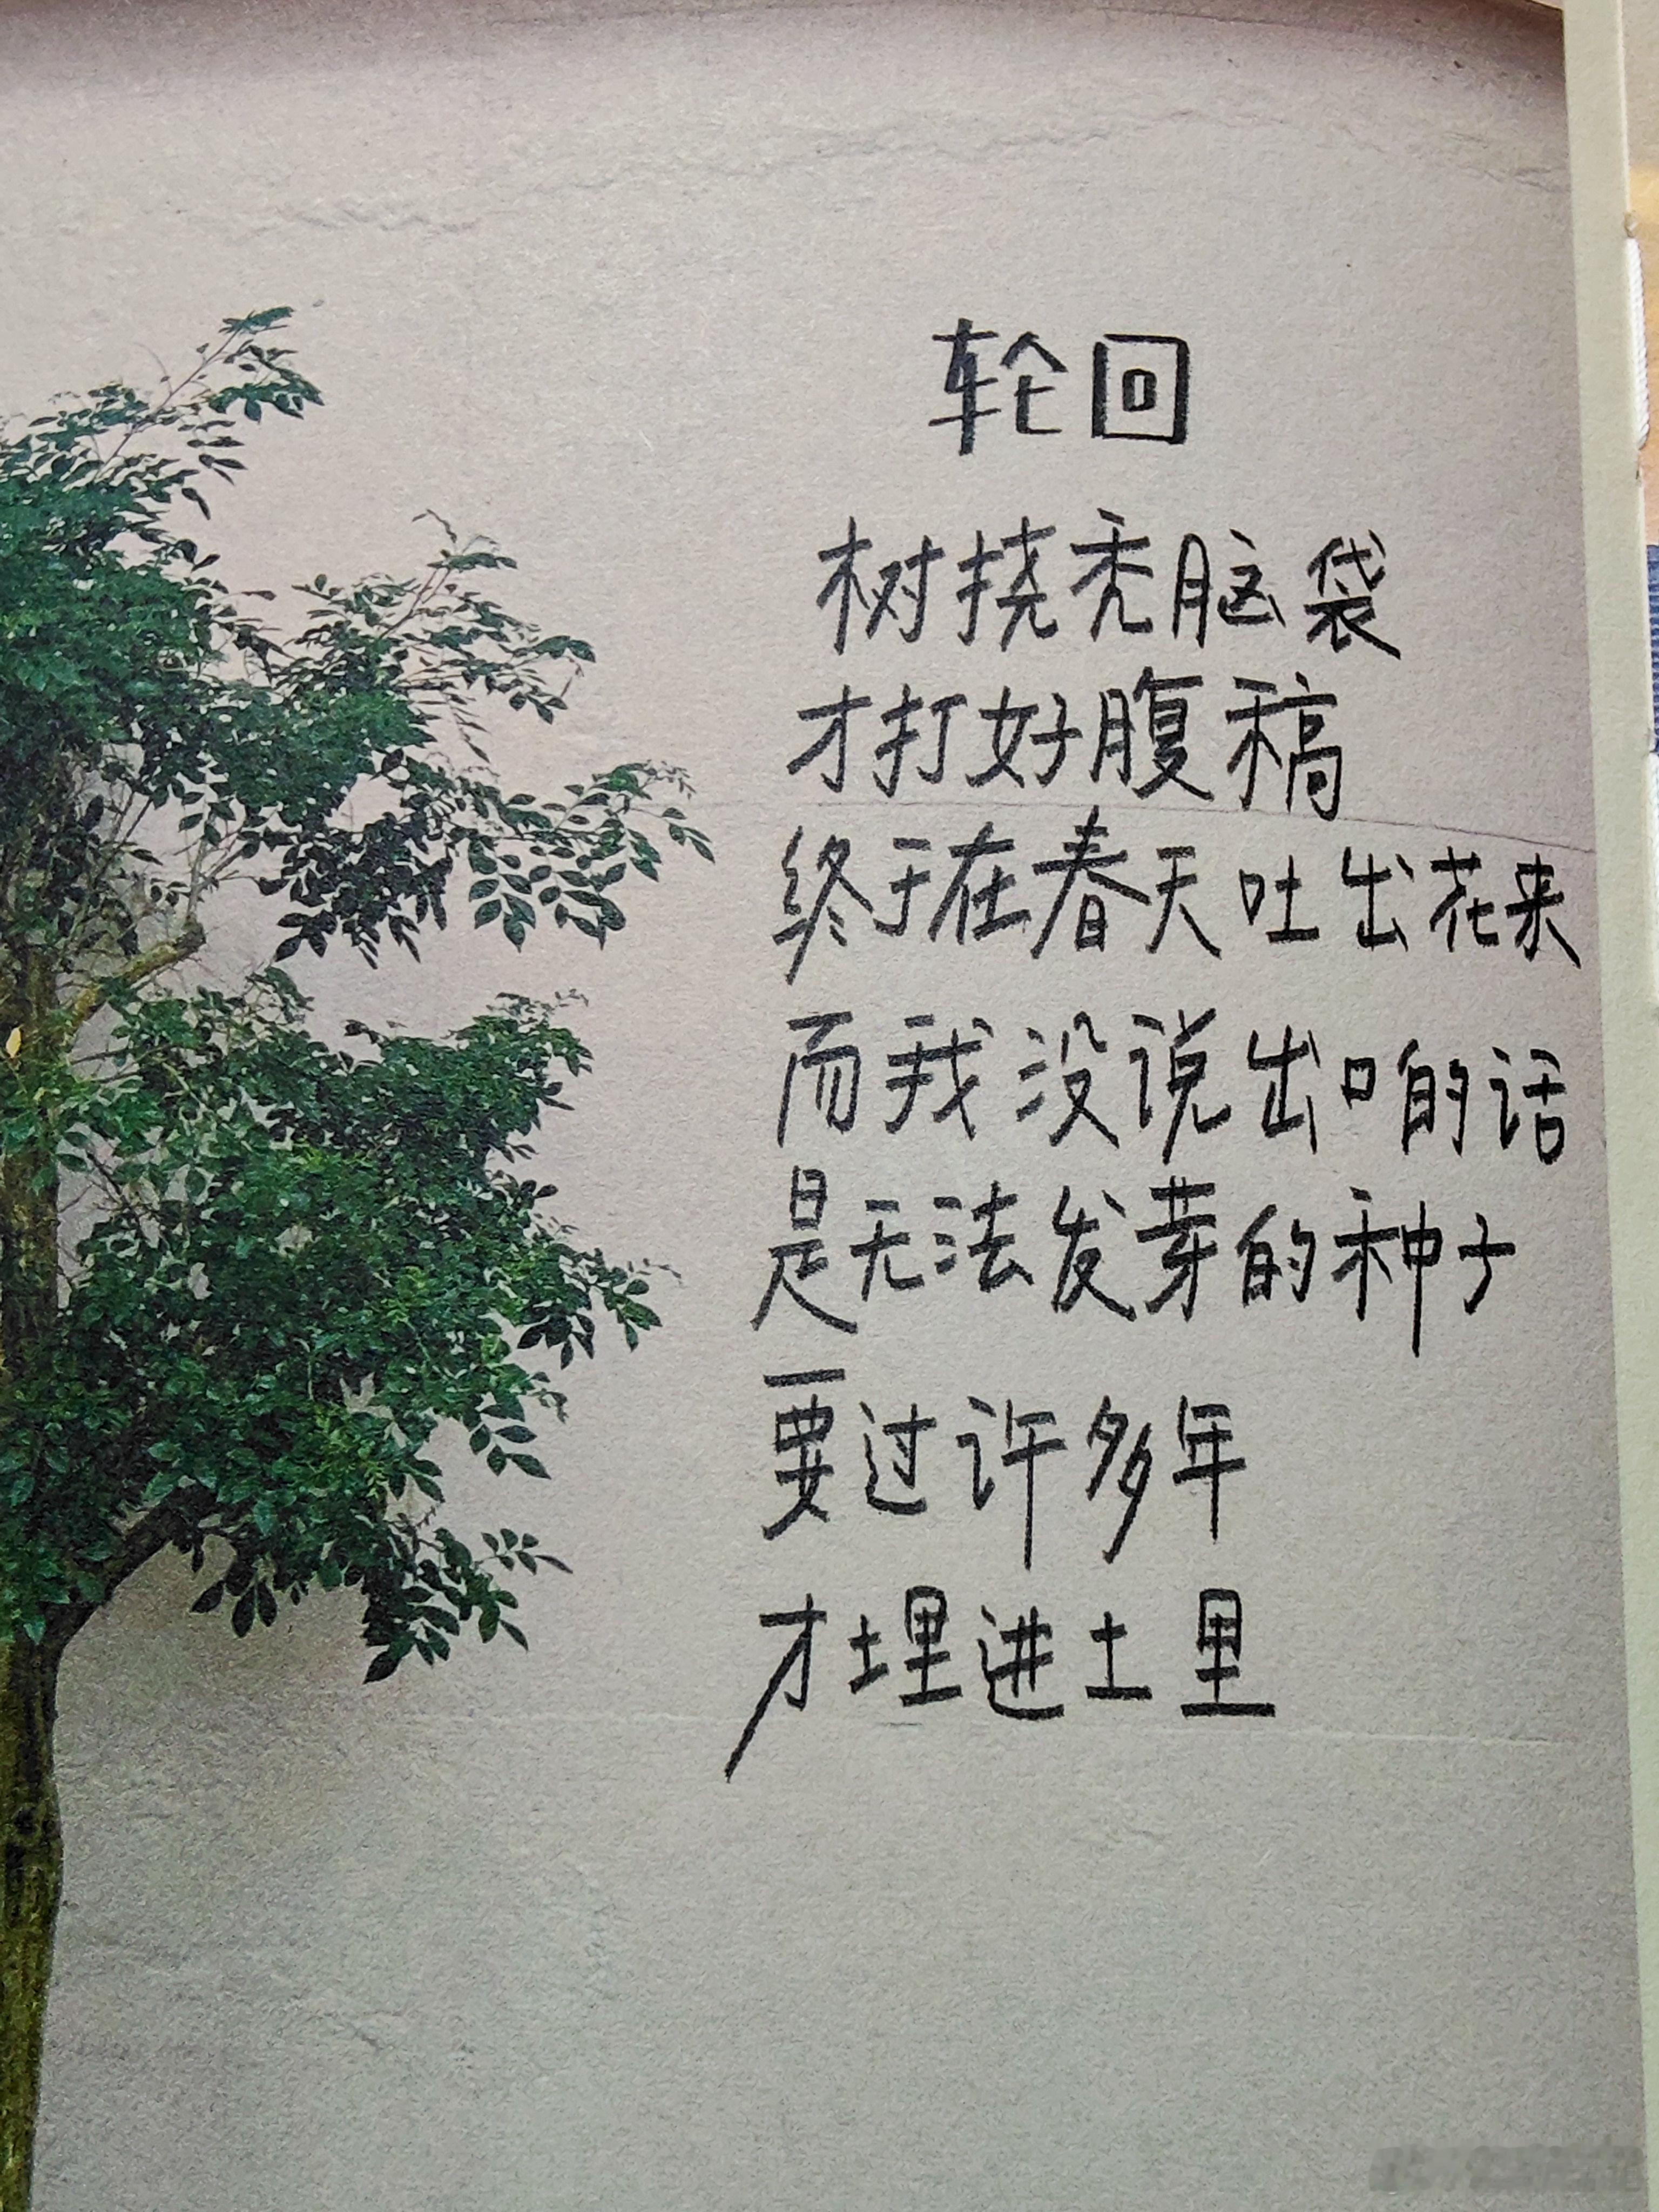 轮回
树挠秃脑袋
才打好腹稿
终于在春天吐出花来
而我没说出口的话
是无法发芽的种子
要过许多年
才埋进土里